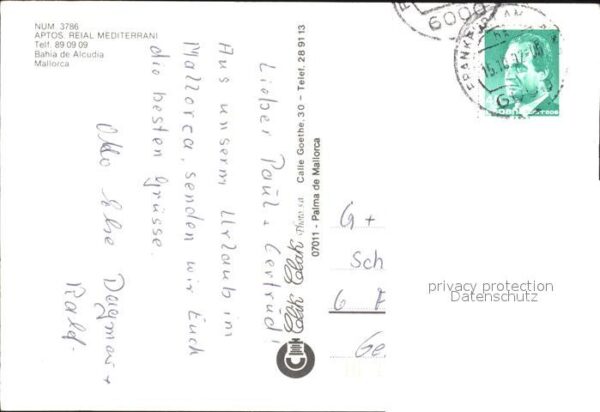 NUM. 3786
APTOS. REIAL MEDITERRANI
Telf. 89 09 09
Bahia de Alcudia
Mallorca
Lieber Paul + Gertrud!
Aus unserm Urlaub im
Mallorca, senden wir Euch
die besten Grüsse.
Otto Else Dagmar +
Clik Clak
Calle Goethe, 30 - Telef. 28 91 13
07011 - Palma de Mallorca
G +
Sch
6 F
Ge
6000
FRANKFURT AM
privacy protection
Datenschutz